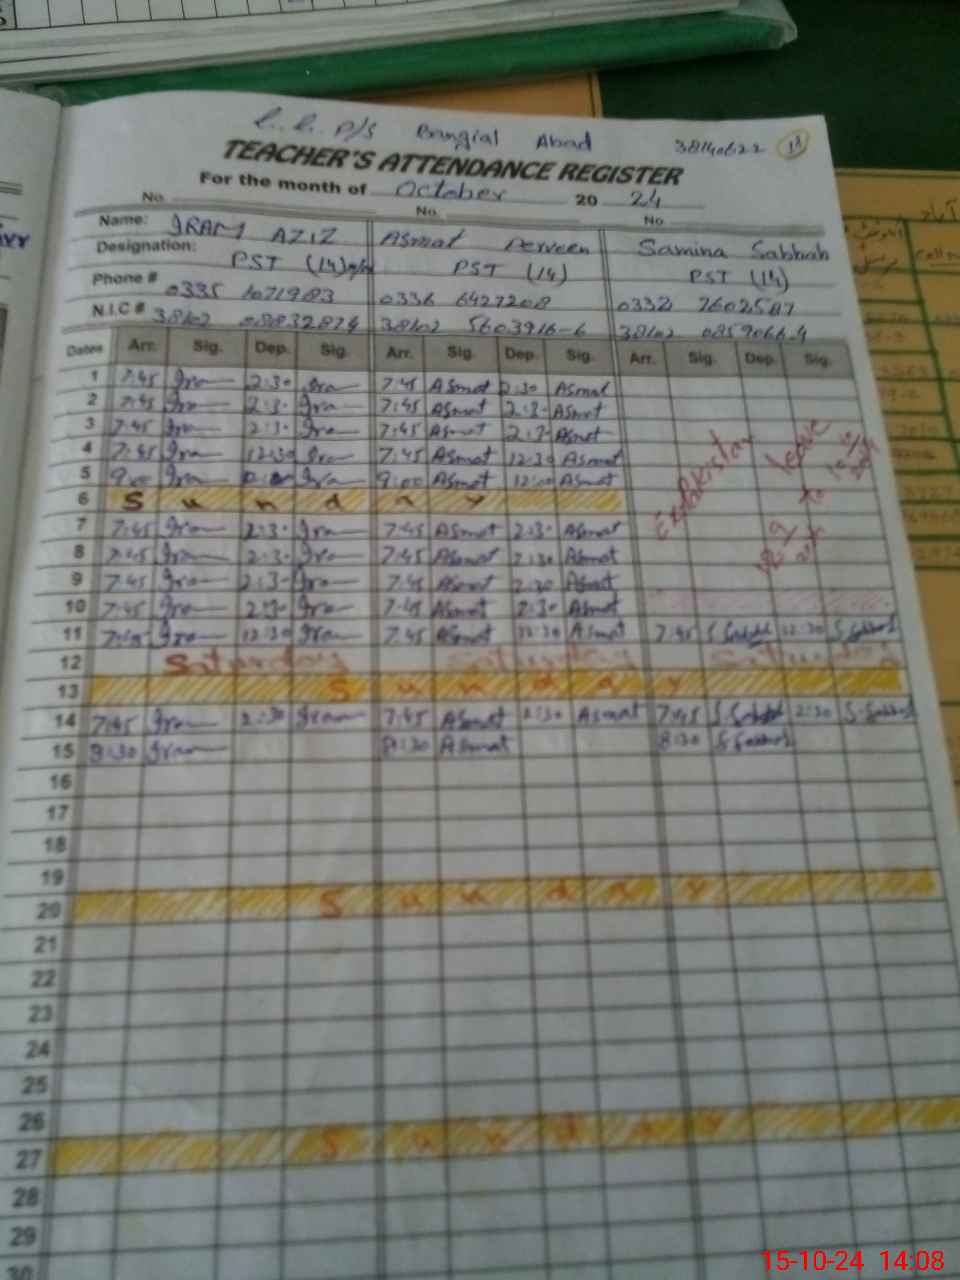 P/S Rangial Abad 38140622 18
TEACHER'S ATTENDANCE REGISTER
For the month of October 20 24
No. No. No.
Name: IRAM AZIZ Asmat Perveen Samina Sabbah
Designation: PST (14) PST (14) PST (14)
Phone # 0335 1071983 0336 6427208 0332 7602587
N.I.C # 38102 38102 5603916-6 38102
Dates Arr. Sig. Dep. Sig. Arr. Sig. Dep. Sig. Arr. Sig. Dep. Sig.
1 7:45 Iram 2:30 Iram 7:45 Asmat 2:30 Asmat
2 7:45 Iram 2:3- Iram 7:45 Asmat 2:3- Asmat
3 7:45 Iram 2:3- Iram 7:45 Asmat 2:3- Asmat
4 7:45 Iram 12:30 Iram 7:45 Asmat 12:30 Asmat
5 9:00 Iram Iram 9:00 Asmat 12:00 Asmat
Expakistan leave
to
6 Sunday
7 7:45 Iram 2:3- Iram 7:45 Asmat 2:3- Asmat
8 7:45 Iram 2:3- Iram 7:45 Asmat 2:30 Asmat
9 7:45 Iram 2:3- Iram 7:45 Asmat 2:30 Asmat
10 7:45 Iram 2:3- Iram 7:45 Asmat 2:30 Asmat
11 7:45 Iram 12:30 Iram 7:45 Asmat 12:30 Asmat 7:45 S.Sabbah 12:30 S.Sabbah
12 Saturday Saturday Saturday
13 Sunday
14 7:45 Iram 2:30 Iram 7:45 Asmat 2:30 Asmat 7:45 S.Sabbah 2:30 S.Sabbah
15 8:30 Iram 8:30 Asmat 8:30 S.Sabbah
16
17
18
19
20 Sunday
21
22
23
24
25
26
27 Sunday
28
29
30
15-10-24 14:08